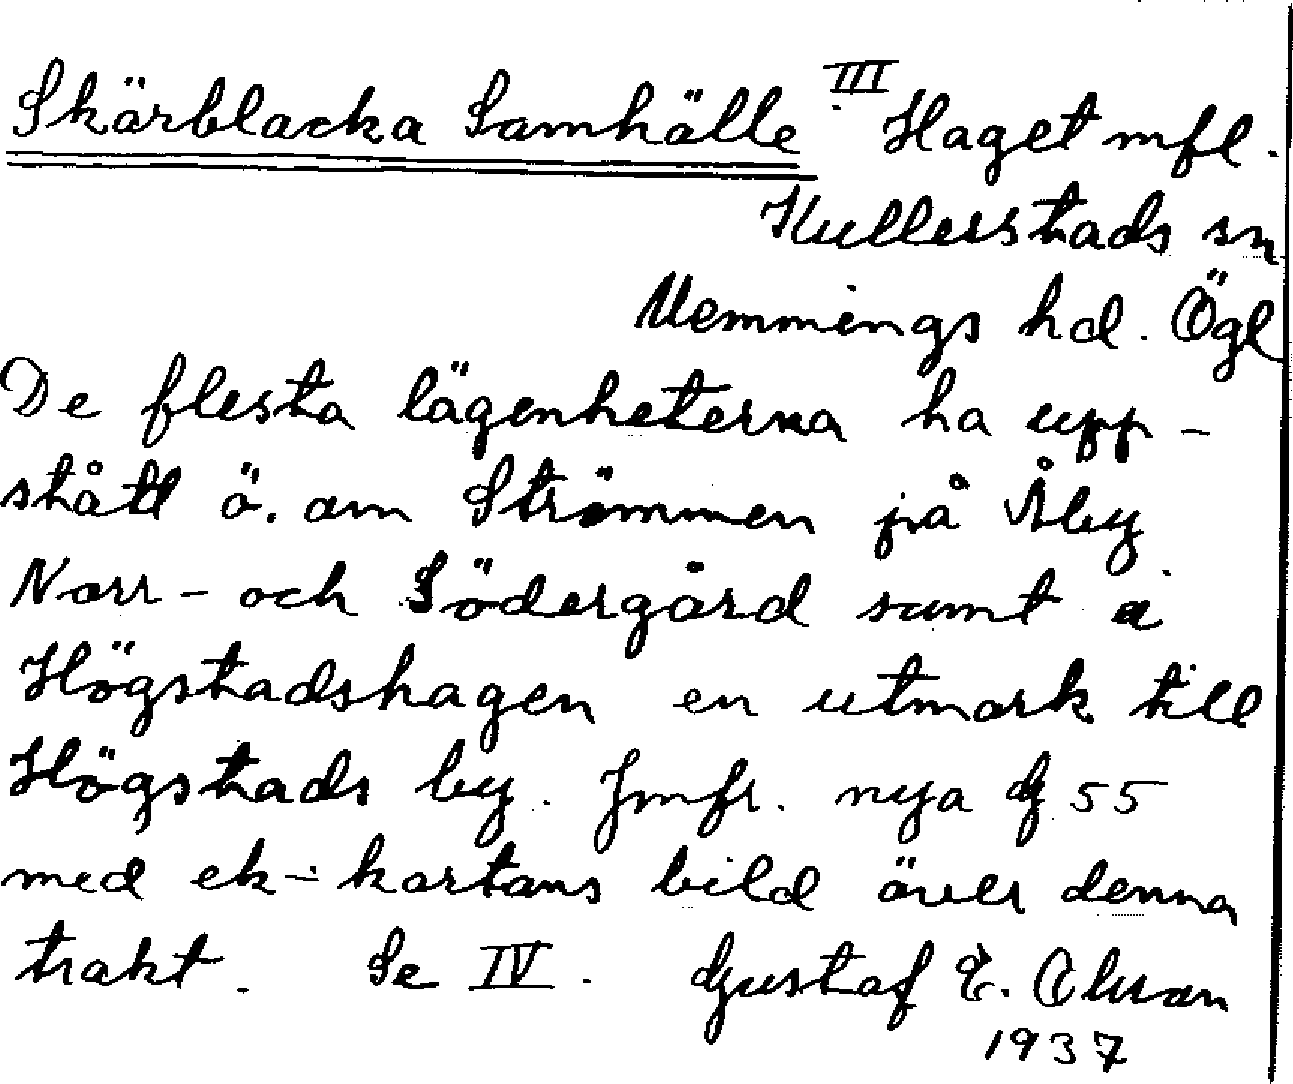 Skärblacka Samhälle III Haget mfl.
Kullerstads sn
Memmings hd. Ögl
De flesta lägenheterna ha upp-
stått ö. om Strömmen på Åby
Norr- och Södergård samt å
Högstadshagen en utmark till
Högstads by. Jmfr. nya G 55
med ek-kartans bild över denna
trakt. Se IV. Gustaf E. Olsson
1937